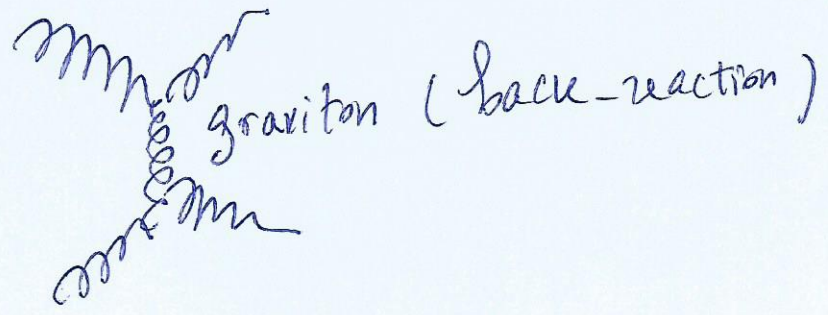 graviton (back-reaction)